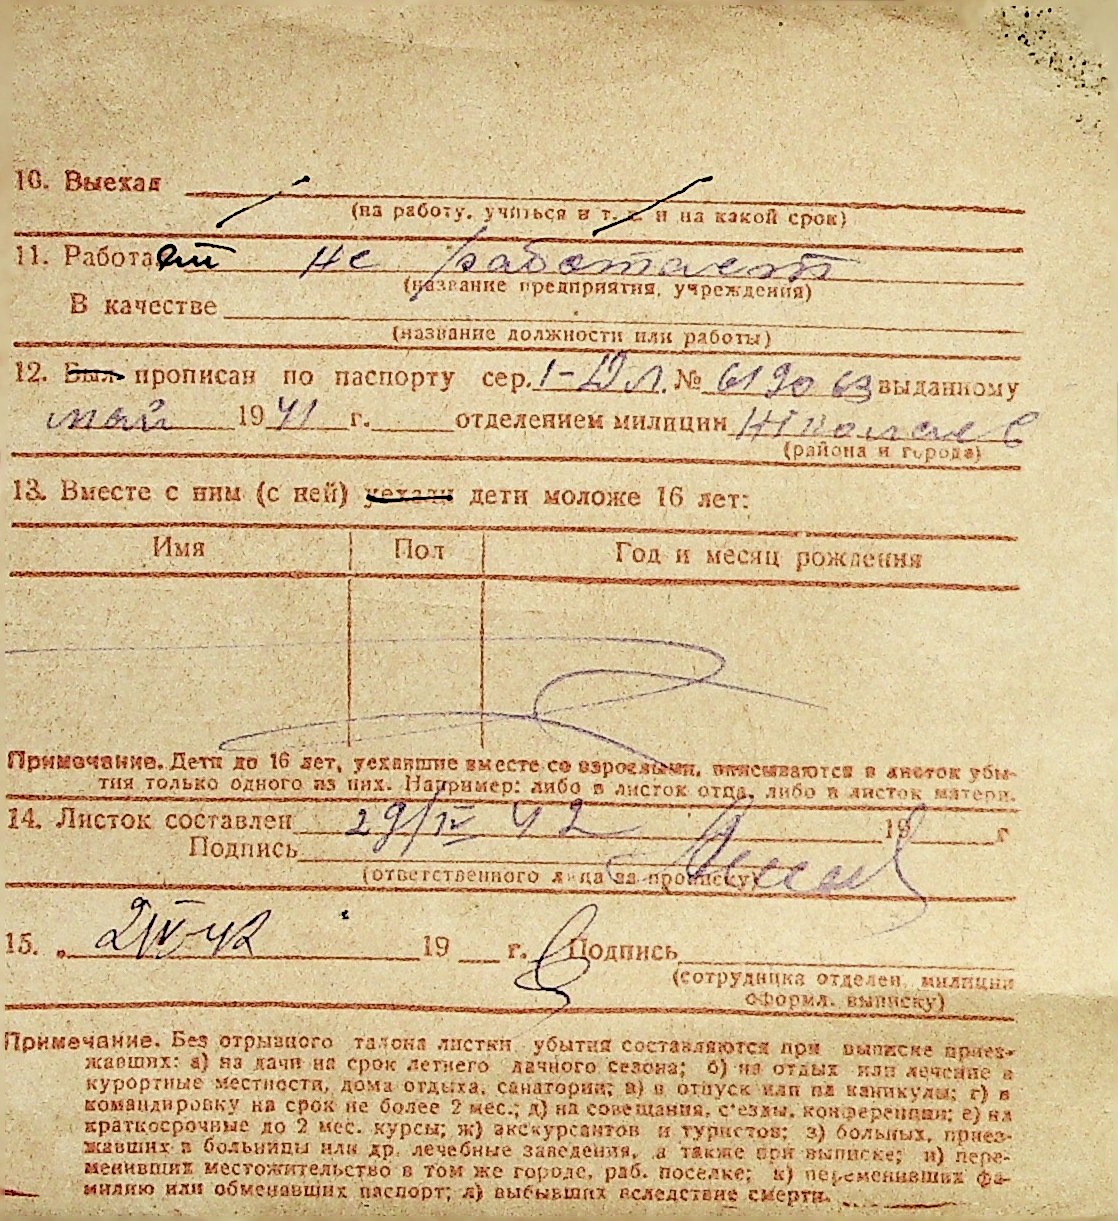 10. Выехал
(на работу, учиться и т. д. и на какой срок)
11. Работает не работает
(название предприятия, учреждения)
В качестве
(название должности или работы)
12. Был прописан по паспорту сер. 1-ДЛ. № 619063 выданному
май 1941 г. отделением милиции Николаев
(района и города)
13. Вместе с ним (с ней) уехали дети моложе 16 лет:
Имя Пол Год и месяц рождения
Примечание. Дети до 16 лет, уехавшие вместе со взрослыми, вписываются в листок убы-
тия только одного из них. Например: либо в листок отца, либо в листок матери.
14. Листок составлен 29/IV 42 19 г
Подпись
(ответственного лица за прописку)
15. „ 2/V 42 19 г. Подпись
(сотрудника отделен. милиции
оформл. выписку)
Примечание. Без отрывного талона листки убытия составляются при выписке приез-
жавших: а) на дачи на срок летнего дачного сезона; б) на отдых или лечение в
курортные местности, дома отдыха, санатории; в) в отпуск или на каникулы; г) в
командировку на срок не более 2 мес.; д) на совещания, с'езды, конференции; е) на
краткосрочные до 2 мес. курсы; ж) экскурсантов и туристов; з) больных, приез-
жавших в больницы или др. лечебные заведения, а также при выписке; и) пере-
менивших местожительство в том же городе, раб. поселке; к) переменивших фа-
милию или обменявших паспорт; л) выбывших вследствие смерти.